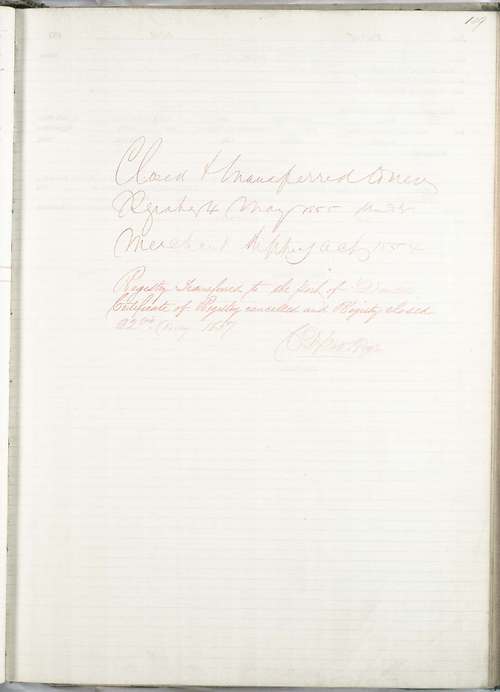 119
Closed & transferred to new
Register 4 May 1855 under
Merchant Shipping Act 1854
Registry Transferred to the Port of
Certificate of Registry cancelled and Registry closed
22nd May 1857